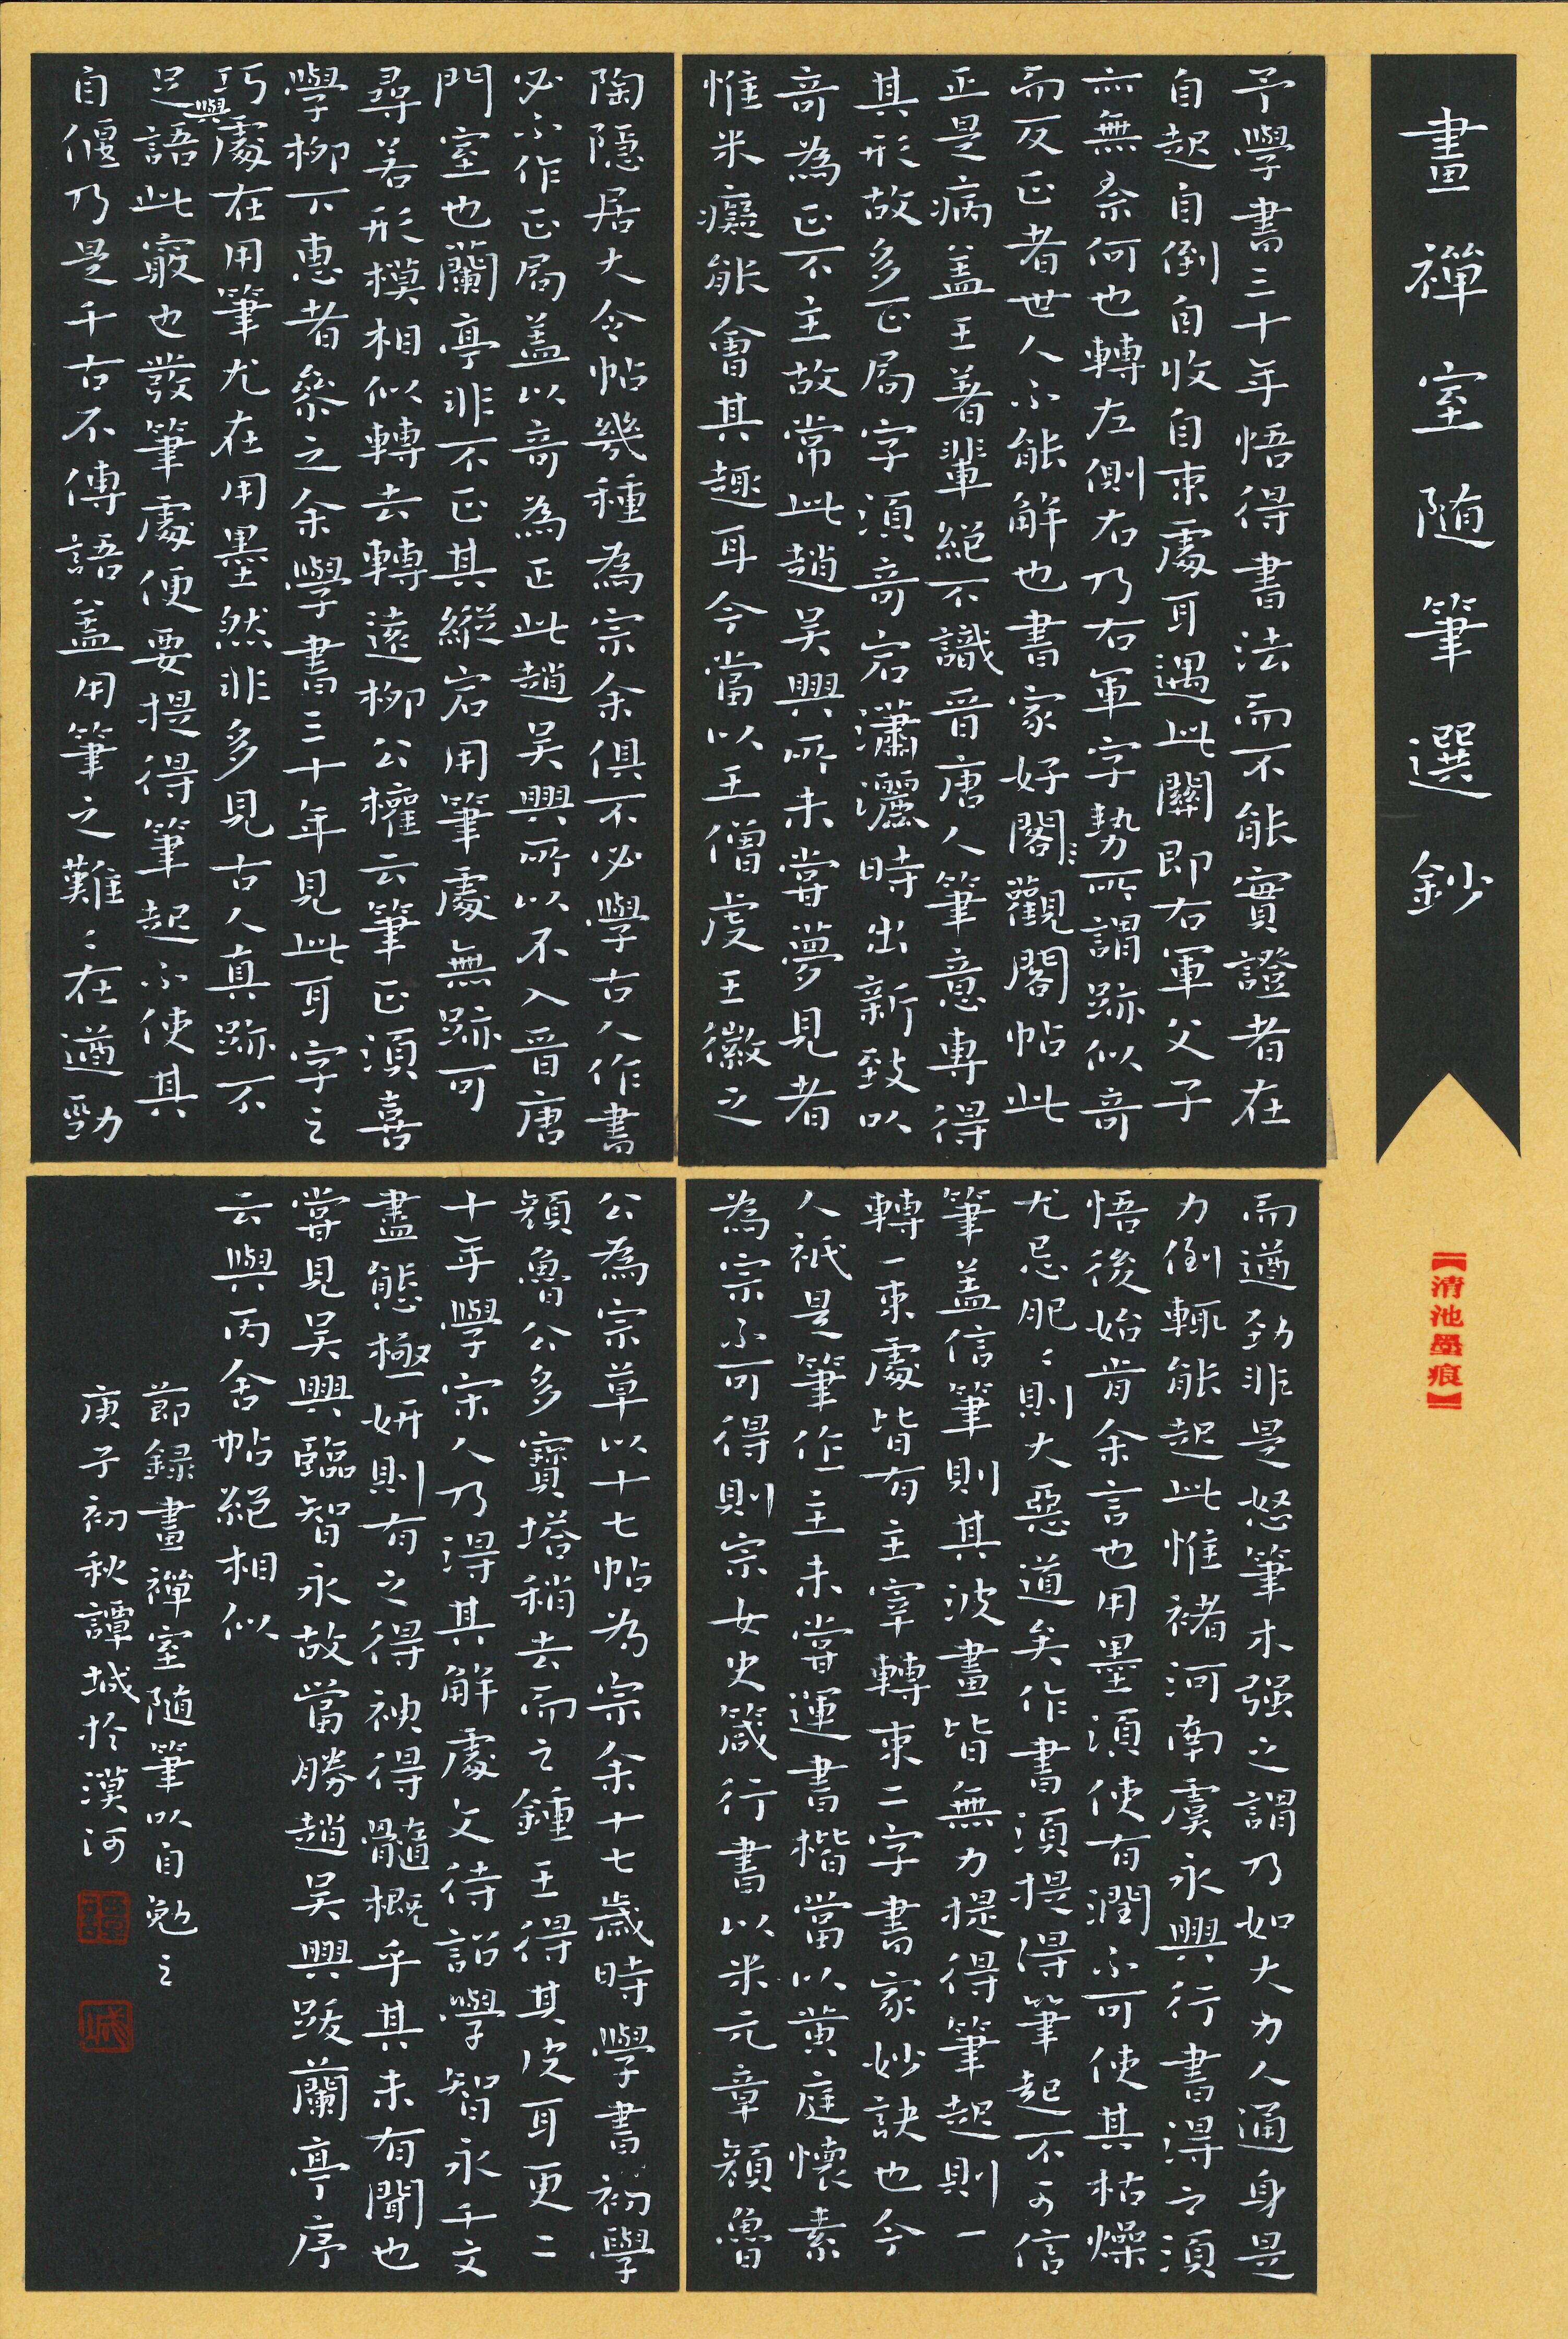 畫禪室随筆選鈔
【清池墨痕】
予學書三十年悟得書法而不能實證者在
自起自倒自收自束處耳過此關即右軍父子
亦無柰何也轉左側右乃右軍字勢所謂跡似奇
而反正者世人不能解也書家好閣〻觀閣帖此
正是病蓋王著輩絕不識晉唐人筆意專得
其形故多正局字須奇宕瀟灑時出新致以
奇為正不主故常此趙吴興所未嘗夢見者
惟米癡能會其趣耳今當以王僧虔王徽之
陶隱居大令帖幾種為宗余俱不必學古人作書
必不作正局蓋以奇為正此趙吴興所以不入晉唐
門室也蘭亭非不正其縱宕用筆處無跡可
尋若形模相似轉去轉遠柳公權云筆正須喜
學柳下惠者參之余學書三十年見此耳字之
巧與處在用筆尤在用墨然非多見古人真跡不
足語此竅也發筆處便要提得筆起不使其
自偃乃是千古不傳語蓋用筆之難〻在遒勁
而遒勁非是怒筆木强之謂乃如大力人通身是
力倒輒能起此惟褚河南虞永興行書得之須
悟後始肯余言也用墨須使有潤不可使其枯燥
尤忌肥〻則大惡道矣作書須提得筆起不可信
筆蓋信筆則其波畫皆無力提得筆起則一
轉一束處皆有主宰轉束二字書家妙訣也今
人祇是筆作主未嘗運書楷當以黄庭懷素
為宗不可得則宗女史箴行書以米元章顔魯
公為宗草以十七帖為宗余十七歲時學書初學
顔魯公多寶塔稍去而之鍾王得其皮耳更二
十年學宋人乃得其解處文待詔學智永千文
盡態極妍則有之得神得髓概乎其未有聞也
嘗見吴興臨智永故當勝趙吴興跋蘭亭序
云與丙舍帖絕相似
節録畫禪室随筆以自勉之
庚子初秋譚城於漠河